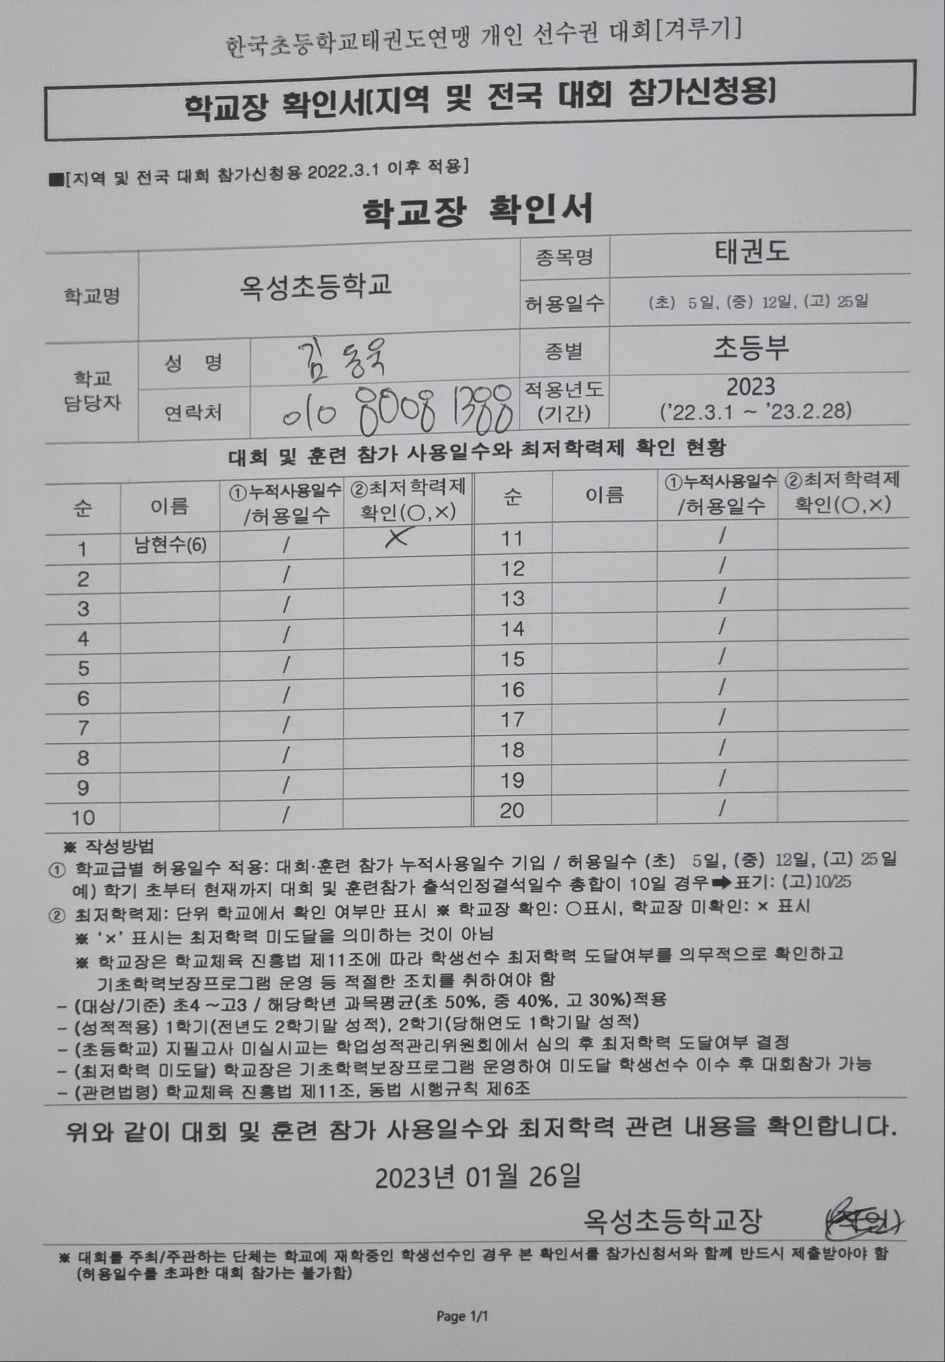 한국초등학교태권도연맹 개인 선수권 대회[겨루기]
학교장 확인서(지역 및 전국 대회 참가신청용)
■[지역 및 전국 대회 참가신청용 2022.3.1 이후 적용]
학교장 확인서
학교명 옥성초등학교 종목명 태권도
허용일수 (초) 5일, (중) 12일, (고) 25일
학교 담당자 성 명 김동욱 종별 초등부
연락처 010 8008 1388 적용년도 (기간) 2023 ('22.3.1 ~ '23.2.28)
대회 및 훈련 참가 사용일수와 최저학력제 확인 현황
순 이름 ①누적사용일수 /허용일수 ②최저학력제 확인(○,×) 순 이름 ①누적사용일수 /허용일수 ②최저학력제 확인(○,×)
1 남현수(6) / × 11 /
2 / 12 /
3 / 13 /
4 / 14 /
5 / 15 /
6 / 16 /
7 / 17 /
8 / 18 /
9 / 19 /
10 / 20 /
※ 작성방법
① 학교급별 허용일수 적용: 대회·훈련 참가 누적사용일수 기입 / 허용일수 (초) 5일, (중) 12일, (고) 25일
예) 학기 초부터 현재까지 대회 및 훈련참가 출석인정결석일수 총합이 10일 경우➡표기: (고)10/25
② 최저학력제: 단위 학교에서 확인 여부만 표시 ※ 학교장 확인: ○표시, 학교장 미확인: × 표시
※ '×' 표시는 최저학력 미도달을 의미하는 것이 아님
※ 학교장은 학교체육 진흥법 제11조에 따라 학생선수 최저학력 도달여부를 의무적으로 확인하고
기초학력보장프로그램 운영 등 적절한 조치를 취하여야 함
- (대상/기준) 초4 ~고3 / 해당학년 과목평균(초 50%, 중 40%, 고 30%)적용
- (성적적용) 1학기(전년도 2학기말 성적), 2학기(당해연도 1학기말 성적)
- (초등학교) 지필고사 미실시교는 학업성적관리위원회에서 심의 후 최저학력 도달여부 결정
- (최저학력 미도달) 학교장은 기초학력보장프로그램 운영하여 미도달 학생선수 이수 후 대회참가 가능
- (관련법령) 학교체육 진흥법 제11조, 동법 시행규칙 제6조
위와 같이 대회 및 훈련 참가 사용일수와 최저학력 관련 내용을 확인합니다.
2023년 01월 26일
옥성초등학교장
※ 대회를 주최/주관하는 단체는 학교에 재학중인 학생선수인 경우 본 확인서를 참가신청서와 함께 반드시 제출받아야 함
(허용일수를 초과한 대회 참가는 불가함)
Page 1/1